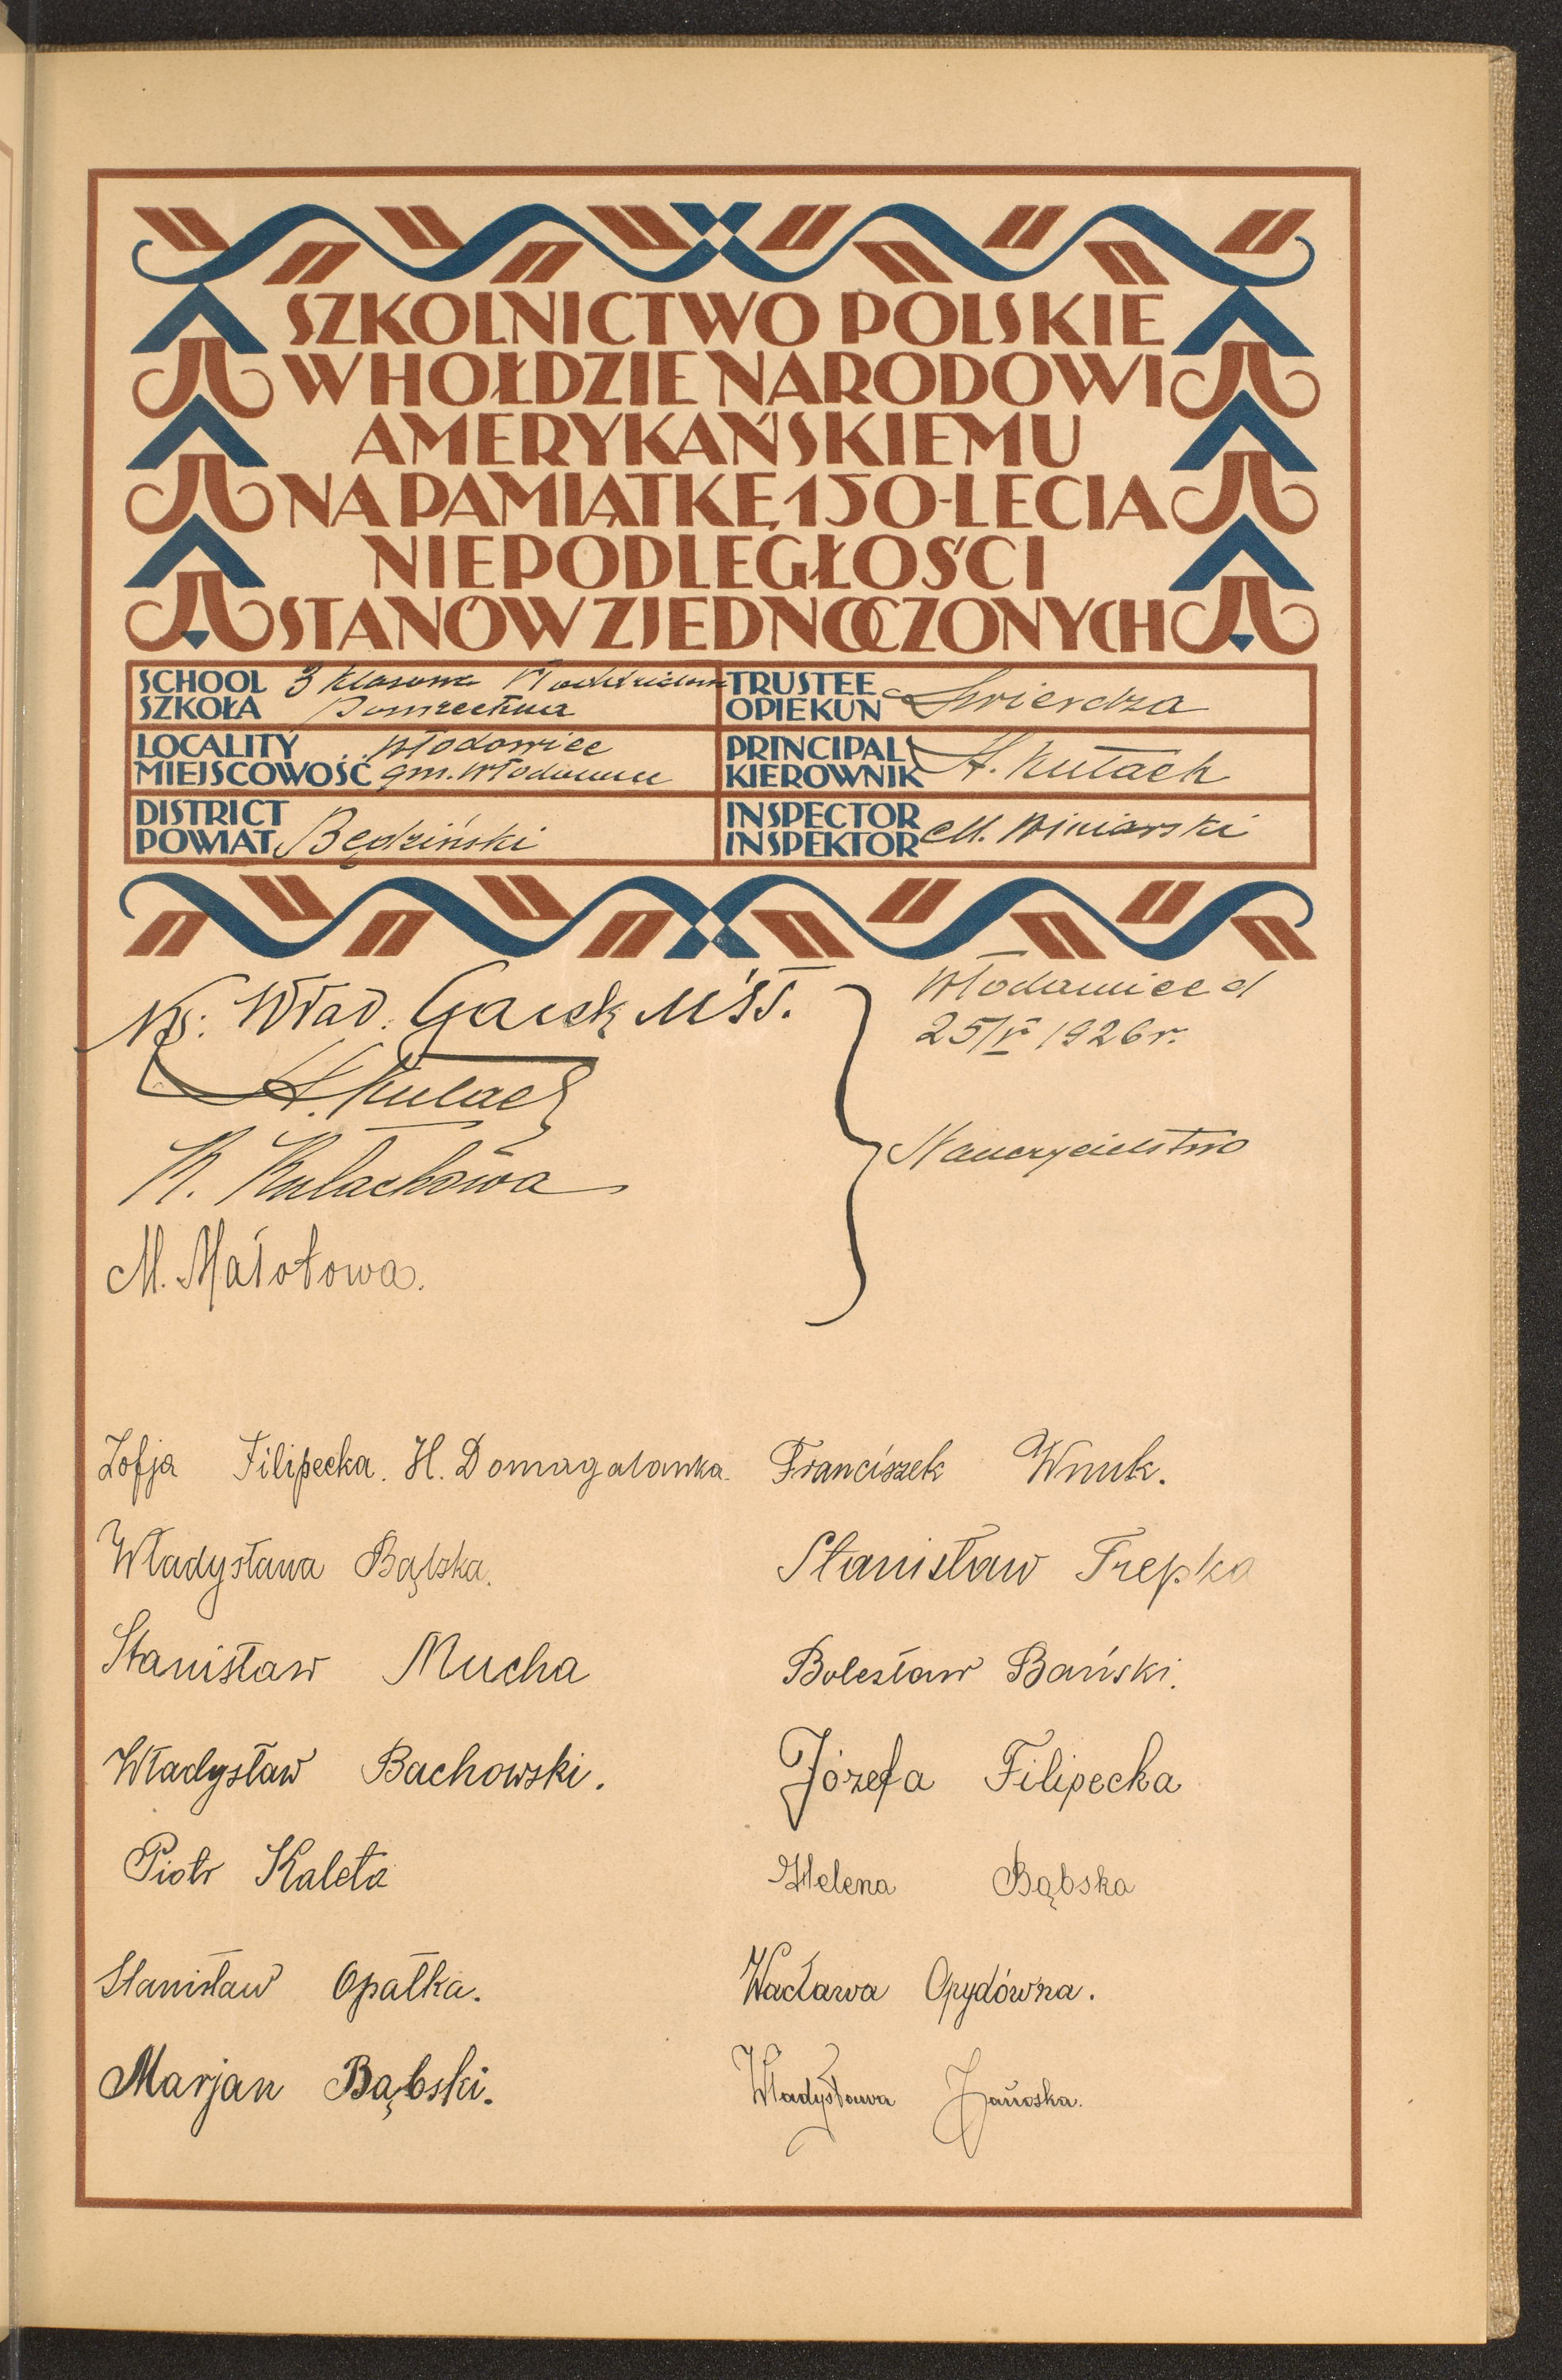 SZKOLNICTWO POLSKIE
W HOŁDZIE NARODOWI
AMERYKAŃSKIEMU
NA PAMIĄTKĘ 150-LECIA
NIEPODLEGŁOŚCI
STANÓW ZJEDNOCZONYCH
SCHOOL 3 klasowa
SZKOŁA Powszechna
TRUSTEE
OPIEKUN Świerdza
LOCALITY Włodowice
MIEJSCOWOŚĆ gm. Włodowice
PRINCIPAL
KIEROWNIK A. Kułach
DISTRICT
POWIAT Będziński
INSPECTOR
INSPEKTOR M. Winiarski
Ks: Wład.
A. Kułach
K. Kułachowa
M. Małotowa.
Włodowice d
25/V 1926 r.
Nauczycielstwo
Zofja Filipecka. H. Domagalanka. Franciszek Wnuk.
Władysława Bąbska. Stanisław Trepka
Stanisław Mucha Bolesław Bański.
Władysław Bachowski. Józefa Filipecka
Piotr Kaleta Helena Bąbska
Stanisław Opałka. Wacława Opydówna.
Marjan Bąbski. Władysława